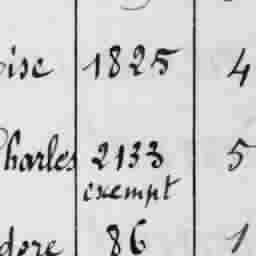 ise 1825 4
harles 2133 5
exempt
dore 86 1